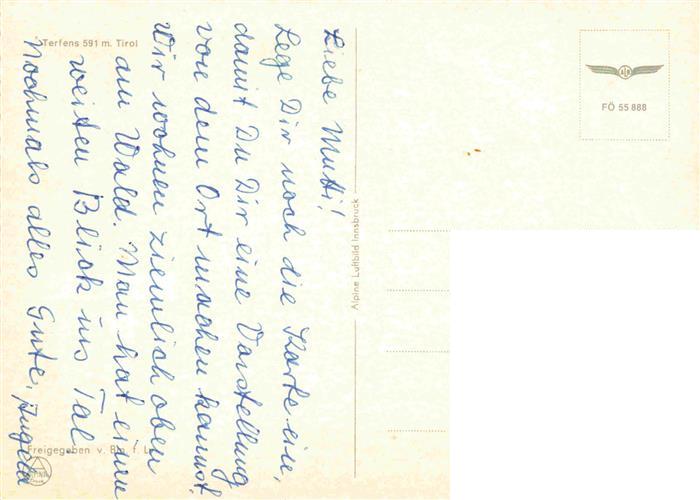 Terfens 591 m. Tirol
Liebe Mutti!
Lege Dir noch die Karte ein,
damit Du Dir eine Vorstellung
von dem Ort machen kannst.
Wir wohnen ziemlich oben
am Wald. Man hat einen
weiten Blick ins Tal.
Nochmals alles Gute, Angela
Freigegeben v. f. L.
Alpine Luftbild Innsbruck
FÖ 55 888